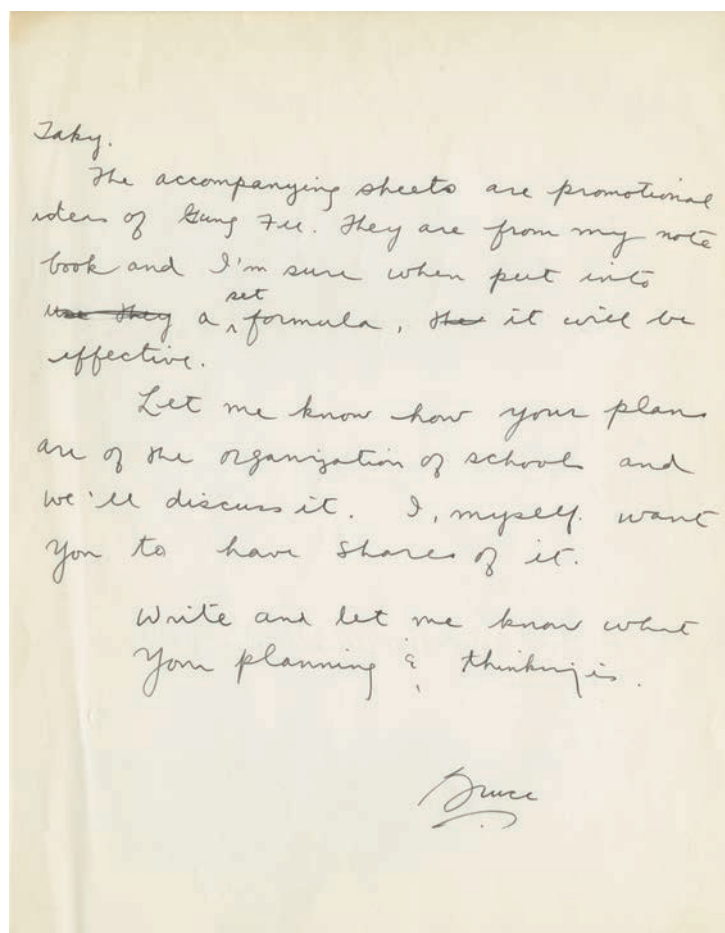 Taky.
The accompanying sheets are promotional
ideas of Gung Fu. They are from my note
book and I'm sure when put into
use they a set formula, the it will be
effective.
Let me know how your plans
are of the organization of schools and
we'll discuss it. I, myself. want
you to have shares of it.
Write and let me know what
Your planning & thinking is.
Bruce